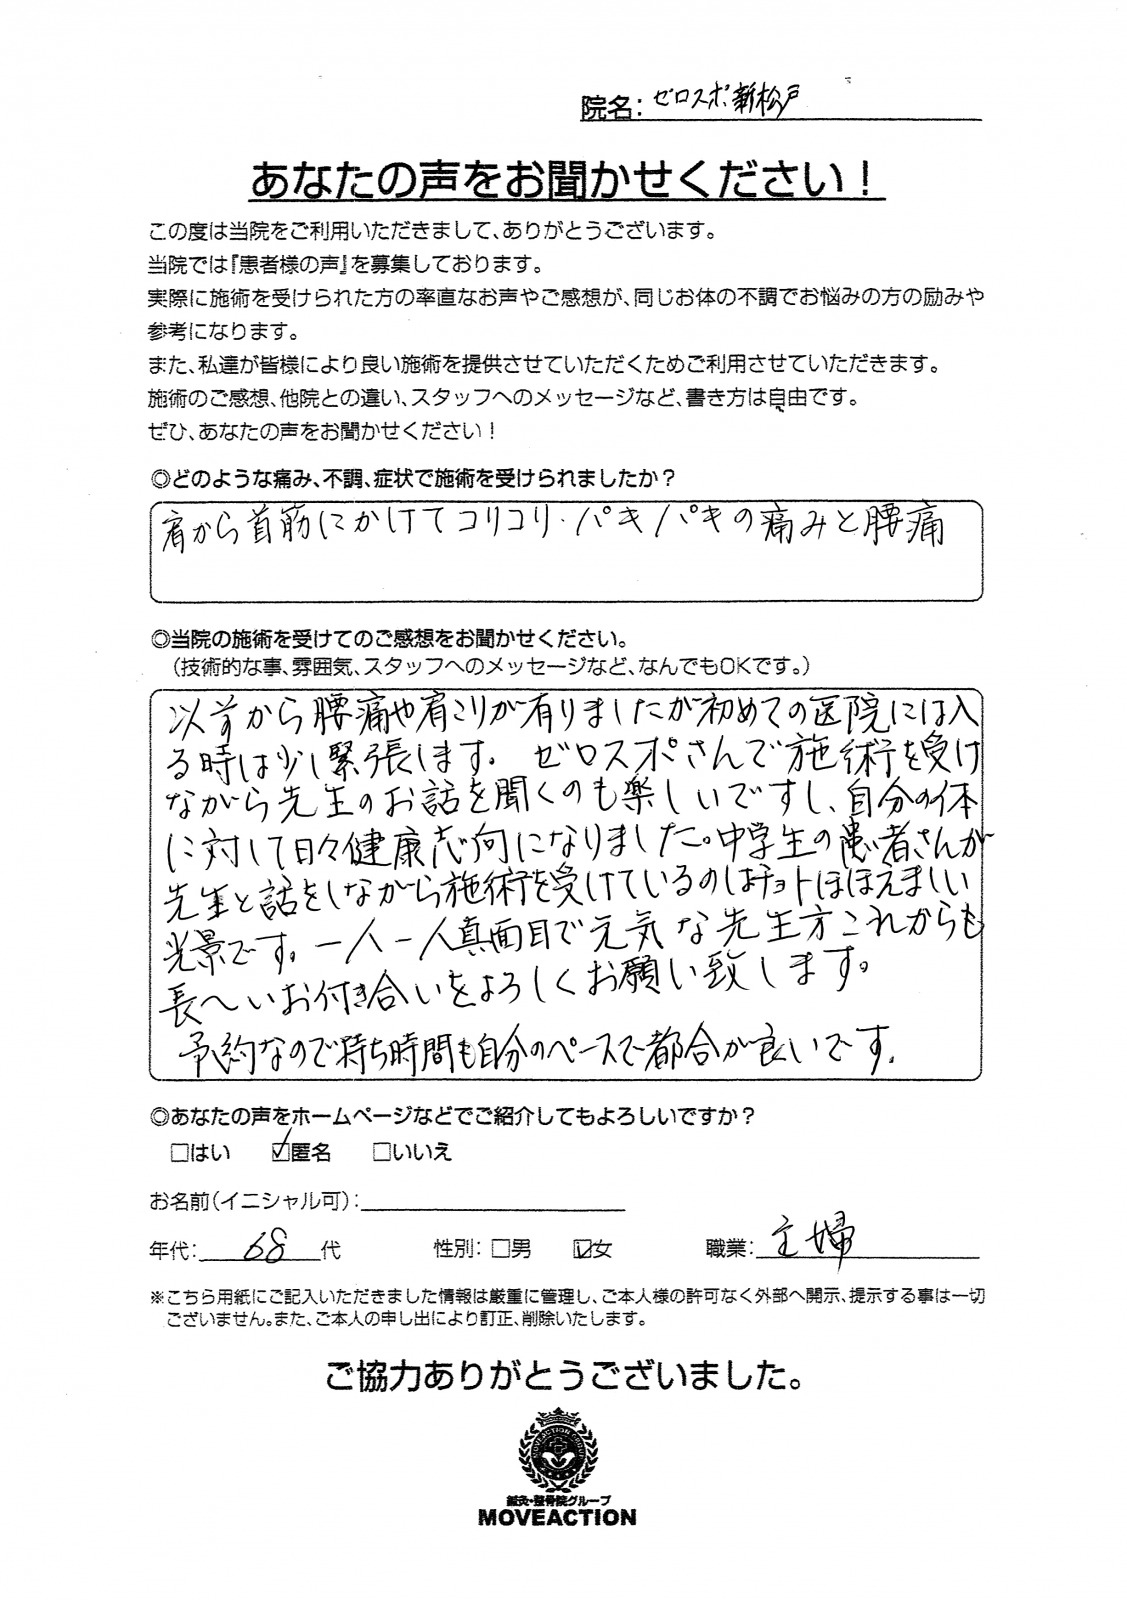 院名: ゼロスポ新松戸
あなたの声をお聞かせください！
この度は当院をご利用いただきまして、ありがとうございます。
当院では『患者様の声』を募集しております。
実際に施術を受けられた方の率直なお声やご感想が、同じお体の不調でお悩みの方の励みや
参考になります。
また、私達が皆様により良い施術を提供させていただくためご利用させていただきます。
施術のご感想、他院との違い、スタッフへのメッセージなど、書き方は自由です。
ぜひ、あなたの声をお聞かせください！
◎どのような痛み、不調、症状で施術を受けられましたか？
肩から首筋にかけてコリコリ・パキパキの痛みと腰痛
◎当院の施術を受けてのご感想をお聞かせください。
（技術的な事、雰囲気、スタッフへのメッセージなど、なんでもOKです。）
以前から腰痛や肩こりが有りましたが初めての医院には入
る時は少し緊張します。ゼロスポさんで施術を受け
ながら先生のお話を聞くのも楽しいですし、自分の体
に対して日々健康志向になりました。中学生の患者さんが
先生と話をしながら施術を受けているのはチョトほほえましい
光景です。一人一人真面目で元気な先生方これからも
長〜いお付き合いをよろしくお願い致します。
予約なので待ち時間も自分のペースで都合が良いです。
◎あなたの声をホームページなどでご紹介してもよろしいですか？
□はい ☑匿名 □いいえ
お名前（イニシャル可）：
年代: 68 代 性別: □男 ☑女 職業: 主婦
※こちら用紙にご記入いただきました情報は厳重に管理し、ご本人様の許可なく外部へ開示、提示する事は一切
ございません。また、ご本人の申し出により訂正、削除いたします。
ご協力ありがとうございました。
MOVEACTION GROUP
鍼灸・整骨院グループ
MOVEACTION